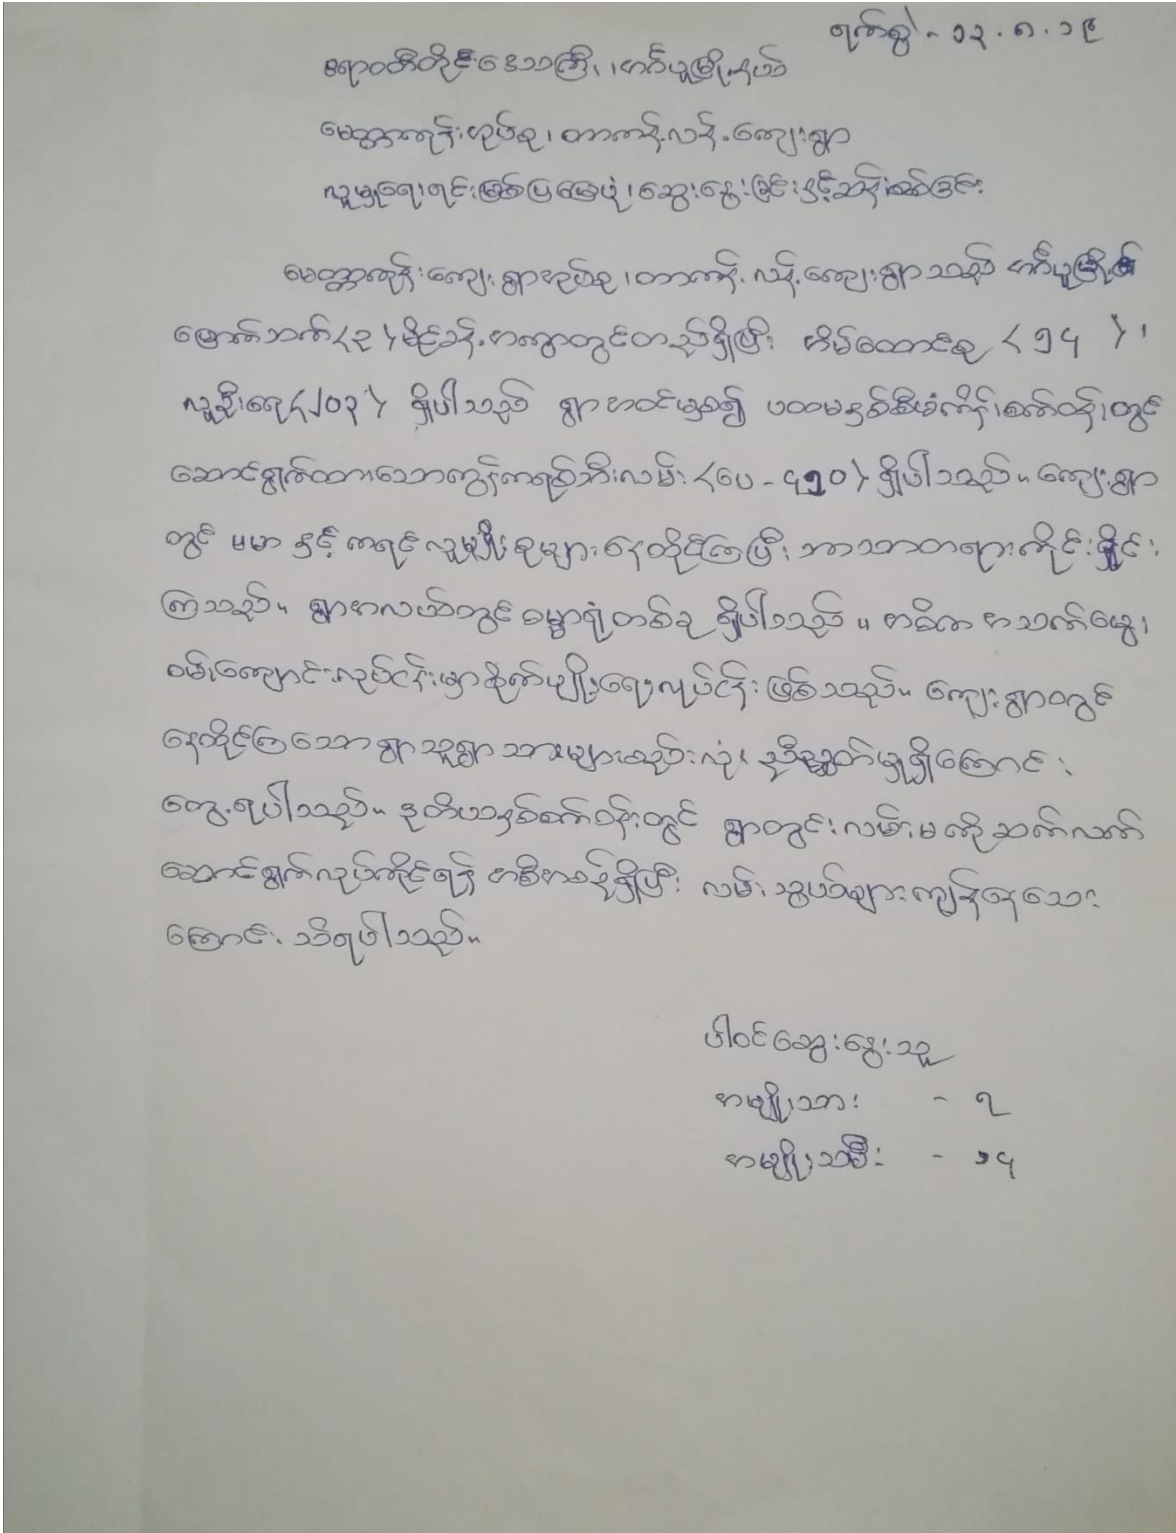 ရက်စွဲ - ၁၃.၈.၁၉
ဧရာဝတီတိုင်းဒေသကြီး၊ အင်္ဂပူမြို့နယ်
မေတ္တာကုန်းအုပ်စု၊ တာကန့်လန့်ကျေးရွာ
လူမှုရေးရင်းမြစ်ပြမြေပုံ၊ ဆွေးနွေးခြင်းနှင့်ဆန်းစစ်ခြင်း
မေတ္တာကုန်းကျေးရွာအုပ်စု၊ တာကန့်လန့်ကျေးရွာသည် အင်္ဂပူမြို့၏
မြောက်ဘက် (၃) မိုင်ခန့်အကွာတွင်တည်ရှိပြီး အိမ်ထောင်စု ( ၅၄ ) ၊
လူဦးရေ (၂၀၃) ရှိပါသည် ရွာအဝင်မှစ၍ ပထမနှစ်စီမံကိန်းစက်ဝန်းတွင်
ဆောင်ရွက်ထားသောကွန်ကရစ်ဘီးလမ်း (ပေ - ၄၅၀) ရှိပါသည်။ ကျေးရွာ
တွင် ဗမာ နှင့် ကရင်လူမျိုးစုများနေထိုင်ကြပြီး ဘာသာတရားကိုင်းရှိုင်း
ကြသည်။ ရွာအလယ်တွင် ဓမ္မာရုံတစ်ခု ရှိပါသည်။ အဓိက အသက်မွေး
ဝမ်းကျောင်းလုပ်ငန်းမှာစိုက်ပျိုးရေးလုပ်ငန်း ဖြစ်သည်။ ကျေးရွာတွင်
နေထိုင်ကြသောရွာသူရွာသားများစည်းလုံး ညီညွတ်မှုရှိကြောင်း
တွေ့ရပါသည်။ ဒုတိယနှစ်စက်ဝန်းတွင် ရွာတွင်းလမ်းမကိုဆက်လက်
ဆောင်ရွက်လုပ်ကိုင်ရန် အစီအစဉ်ရှိပြီး လမ်းသွယ်များကျန်နေသေး
ကြောင်း သိရပါသည်။
ပါဝင်ဆွေးနွေးသူ
အမျိုးသား - ၇
အမျိုးသမီး - ၁၄